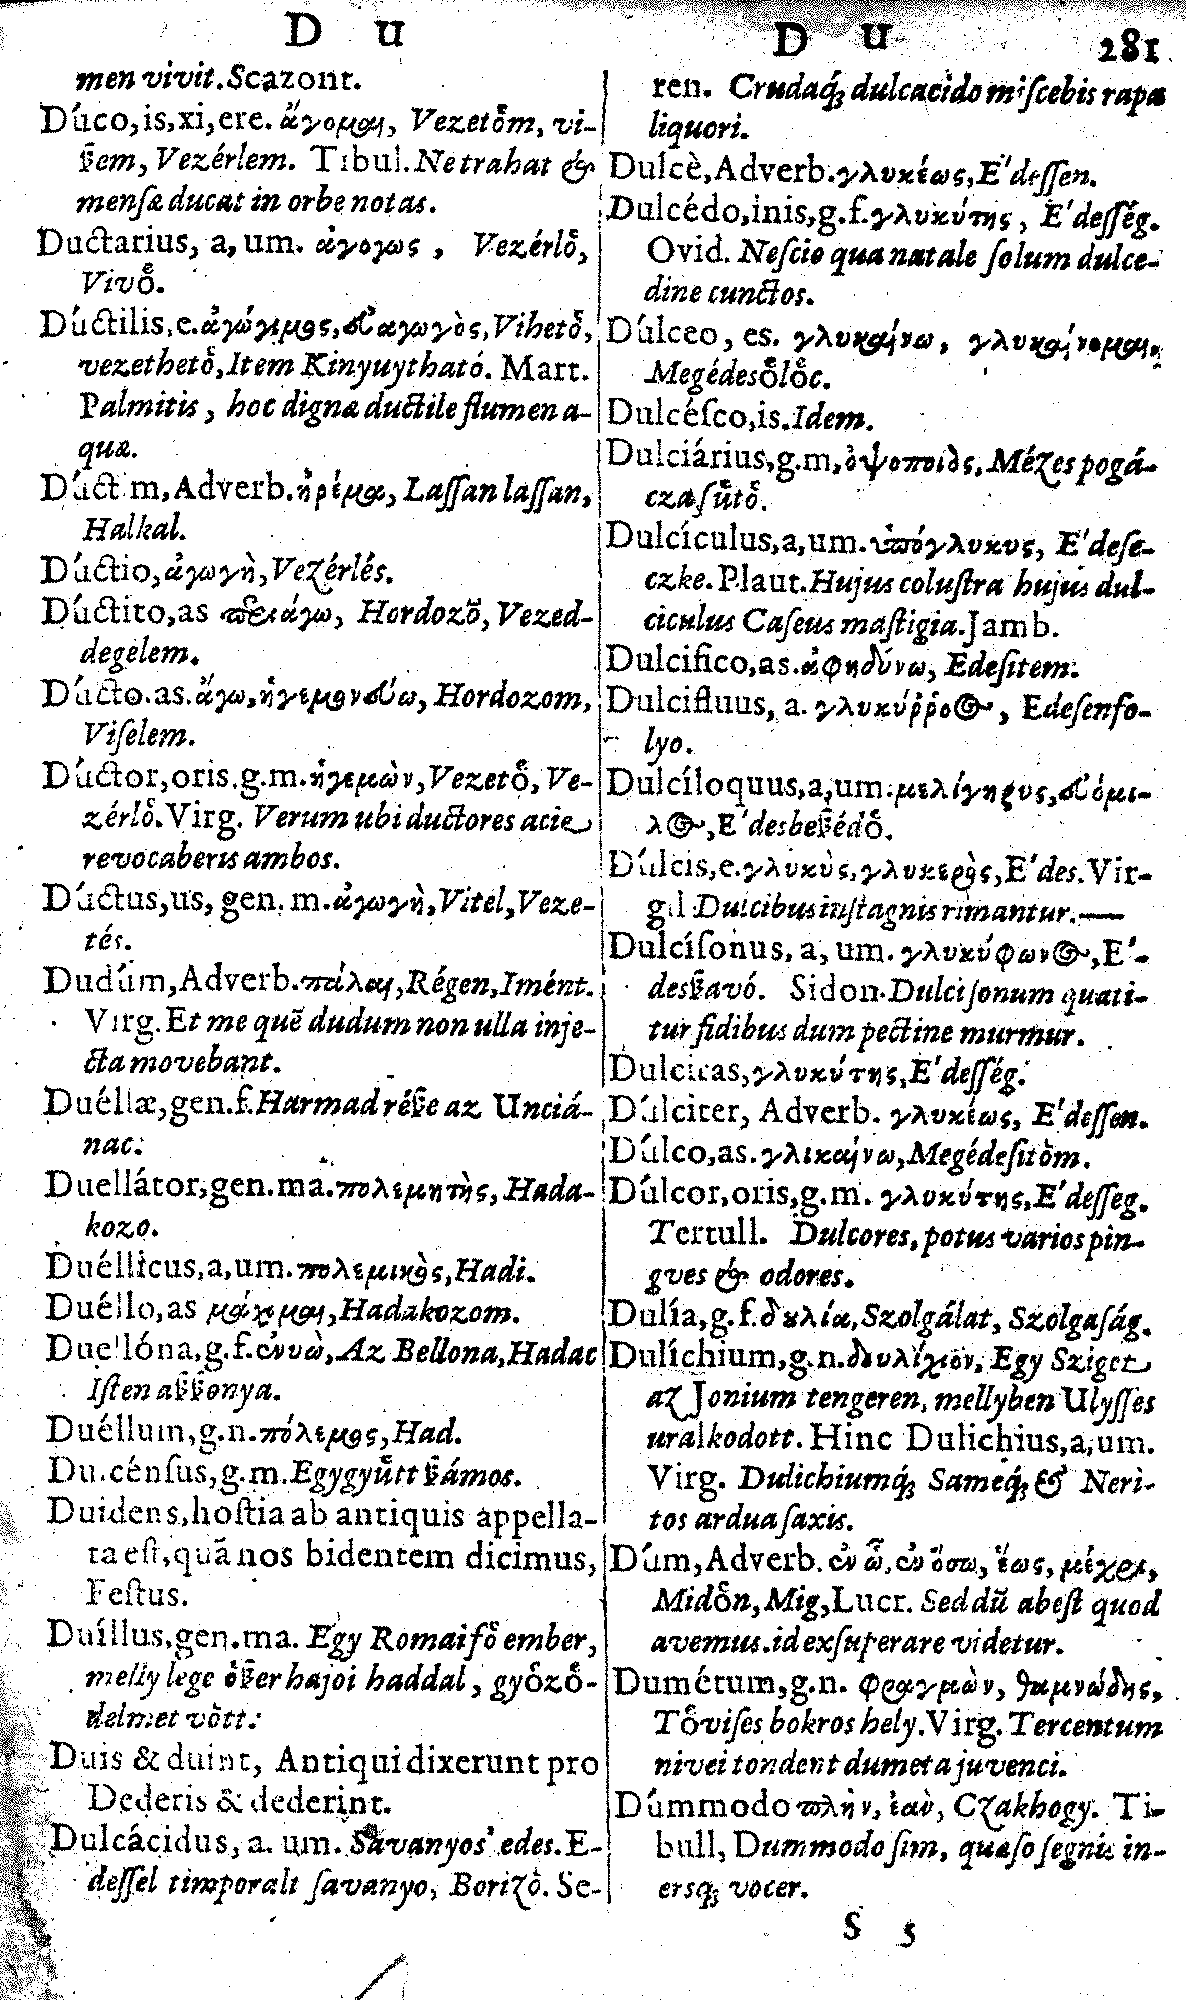 D u
men vivit. Scazont.
Dúco, is, xi, ere. ἄγομαι, Vezetȍm, vi-
ßem, Vezérlem. Tibul. Ne trahat &
mensæ ducat in orbe notas.
Ductarius, a, um. ἀγογως, Vezérlȍ,
Vivȍ.
Dúctilis, e. ἀγώγιμος, ἐυαγωγὸς, Vihetȍ,
vezethetȍ, Item Kinyuytható. Mart.
Palmitis, hoc dignæ ductile flumen a-
quæ.
Dúctim, Adverb. ἠρέμα, Laſſan laſſan,
Halkal.
Dúctio, ἀγωγὴ, Vezérlés.
Dúctito, as περιάγω, Hordozȍ, Vezed-
degelem.
Dúcto. as. ἄγω, ἡγεμονεύω, Hordozom,
Viſelem.
Dúctor, oris. g. m. ἡγεμὼν, Vezetȍ, Ve-
zérlȍ. Virg. Verum ubi ductores acie
revocaberis ambos.
Dúctus, us, gen. m. ἀγωγὴ, Vitel, Veze-
tés.
Dudúm, Adverb. πάλαι, Régen, Imént.
Virg. Et me quē dudum non ulla inje-
cta movebant.
Duéllæ, gen. f. Harmad réße az Unciá-
nac.
Duellátor, gen. ma. πολεμητὴς, Hada-
kozo.
Duéllicus, a, um. πολεμικὸς, Hadi.
Duéllo, as μάχομαι, Hadakozom.
Duellóna, g. f. ἐνυὼ, Az Bellona, Hadac
Iſten aßßonya.
Duéllum, g. n. πόλεμος, Had.
Ducénſus, g. m. Egygyűtt ßámos.
Duidens, hoſtia ab antiquis appella-
ta eſt, quā nos bidentem dicimus,
Feſtus.
Duíllus, gen. ma. Egy Romai fȍ ember,
melly lege ȍßer hajoi haddal, gyȍzȍ-
delmet vȍtt.
Duis & duint, Antiqui dixerunt pro
Dederis & dederint.
Dulcácidus, a. um. Savanyos edes. E-
deſſel timporalt ſavanyo, Borizȍ. Se-
D u 281
ren. Crudaq; dulcacido miſcebis rapa
liquori.
Dulcè, Adverb. γλυκέως, E'deſſen.
Dulcédo, inis, g. f. γλυκύτης, E'deſſég.
Ovid. Neſcio qua natale ſolum dulce-
dine cunctos.
Dúlceo, es. γλυκαίνω, γλυκαίνομαι,
Megédesȍlȍc.
Dulcéſco, is. Idem.
Dulciárius, g. m, ὀψοποιὸς, Mézes pogá-
cza ſűtȍ.
Dulcículus, a, um. ὑπόγλυκυς, E'deſe-
czke. Plaut. Hujus coluſtra hujus dul-
ciculus Caſeus maſtigia. Jamb.
Dulcifico, as. ἀφηδύνω, Edeſitem.
Dulcifluus, a. γλυκύῤῥοος, Edeſen fo-
lyo.
Dulcíloquus, a, um. μελίγηρυς, ἐυόμι-
λος, E'desbeßédȍ.
Dúlcis, e. γλυκὺς, γλυκερὸς, E'des. Vir-
gil Dulcibus in ſtagnis rimantur.
Dulcíſonus, a, um. γλυκύφωνος, E'-
desßavó. Sidon. Dulciſonum quati-
tur fidibus dum pectine murmur.
Dulcitas, γλυκύτης, E'deſſég.
Dúlciter, Adverb. γλυκέως, E'deſſen.
Dúlco, as. γλικαίνω, Megédeſitȍm.
Dúlcor, oris, g. m. γλυκύτης, E'deſſeg.
Tertull. Dulcores, potus varios pin-
gves & odores.
Dulía, g. f. δουλία, Szolgálat, Szolgaſág.
Dulíchium, g. n. δουλίχιον, Egy Sziget
az Jonium tengeren, mellyben Ulyſſes
uralkodott. Hinc Dulichius, a, um.
Virg. Dulichiumq; Sameq; & Neri-
tos ardua ſaxis.
Dúm, Adverb. ἐν ᾧ, ἐν ὅσω, ἕως, μέχρι,
Midȍn, Mig, Lucr. Sed dū abeſt quod
avemus. id exſuperare videtur.
Dumétum, g. n. φραγμὼν, θαμνώδης,
Tȍviſes bokros hely. Virg. Tercentum
nivei tondent dumeta juvenci.
Dúmmodo πλὴν, ἐαὺ, Czakhogy. Ti-
bull, Dummodo ſim, quæſo ſegnis in-
ersq; vocer.
S 5